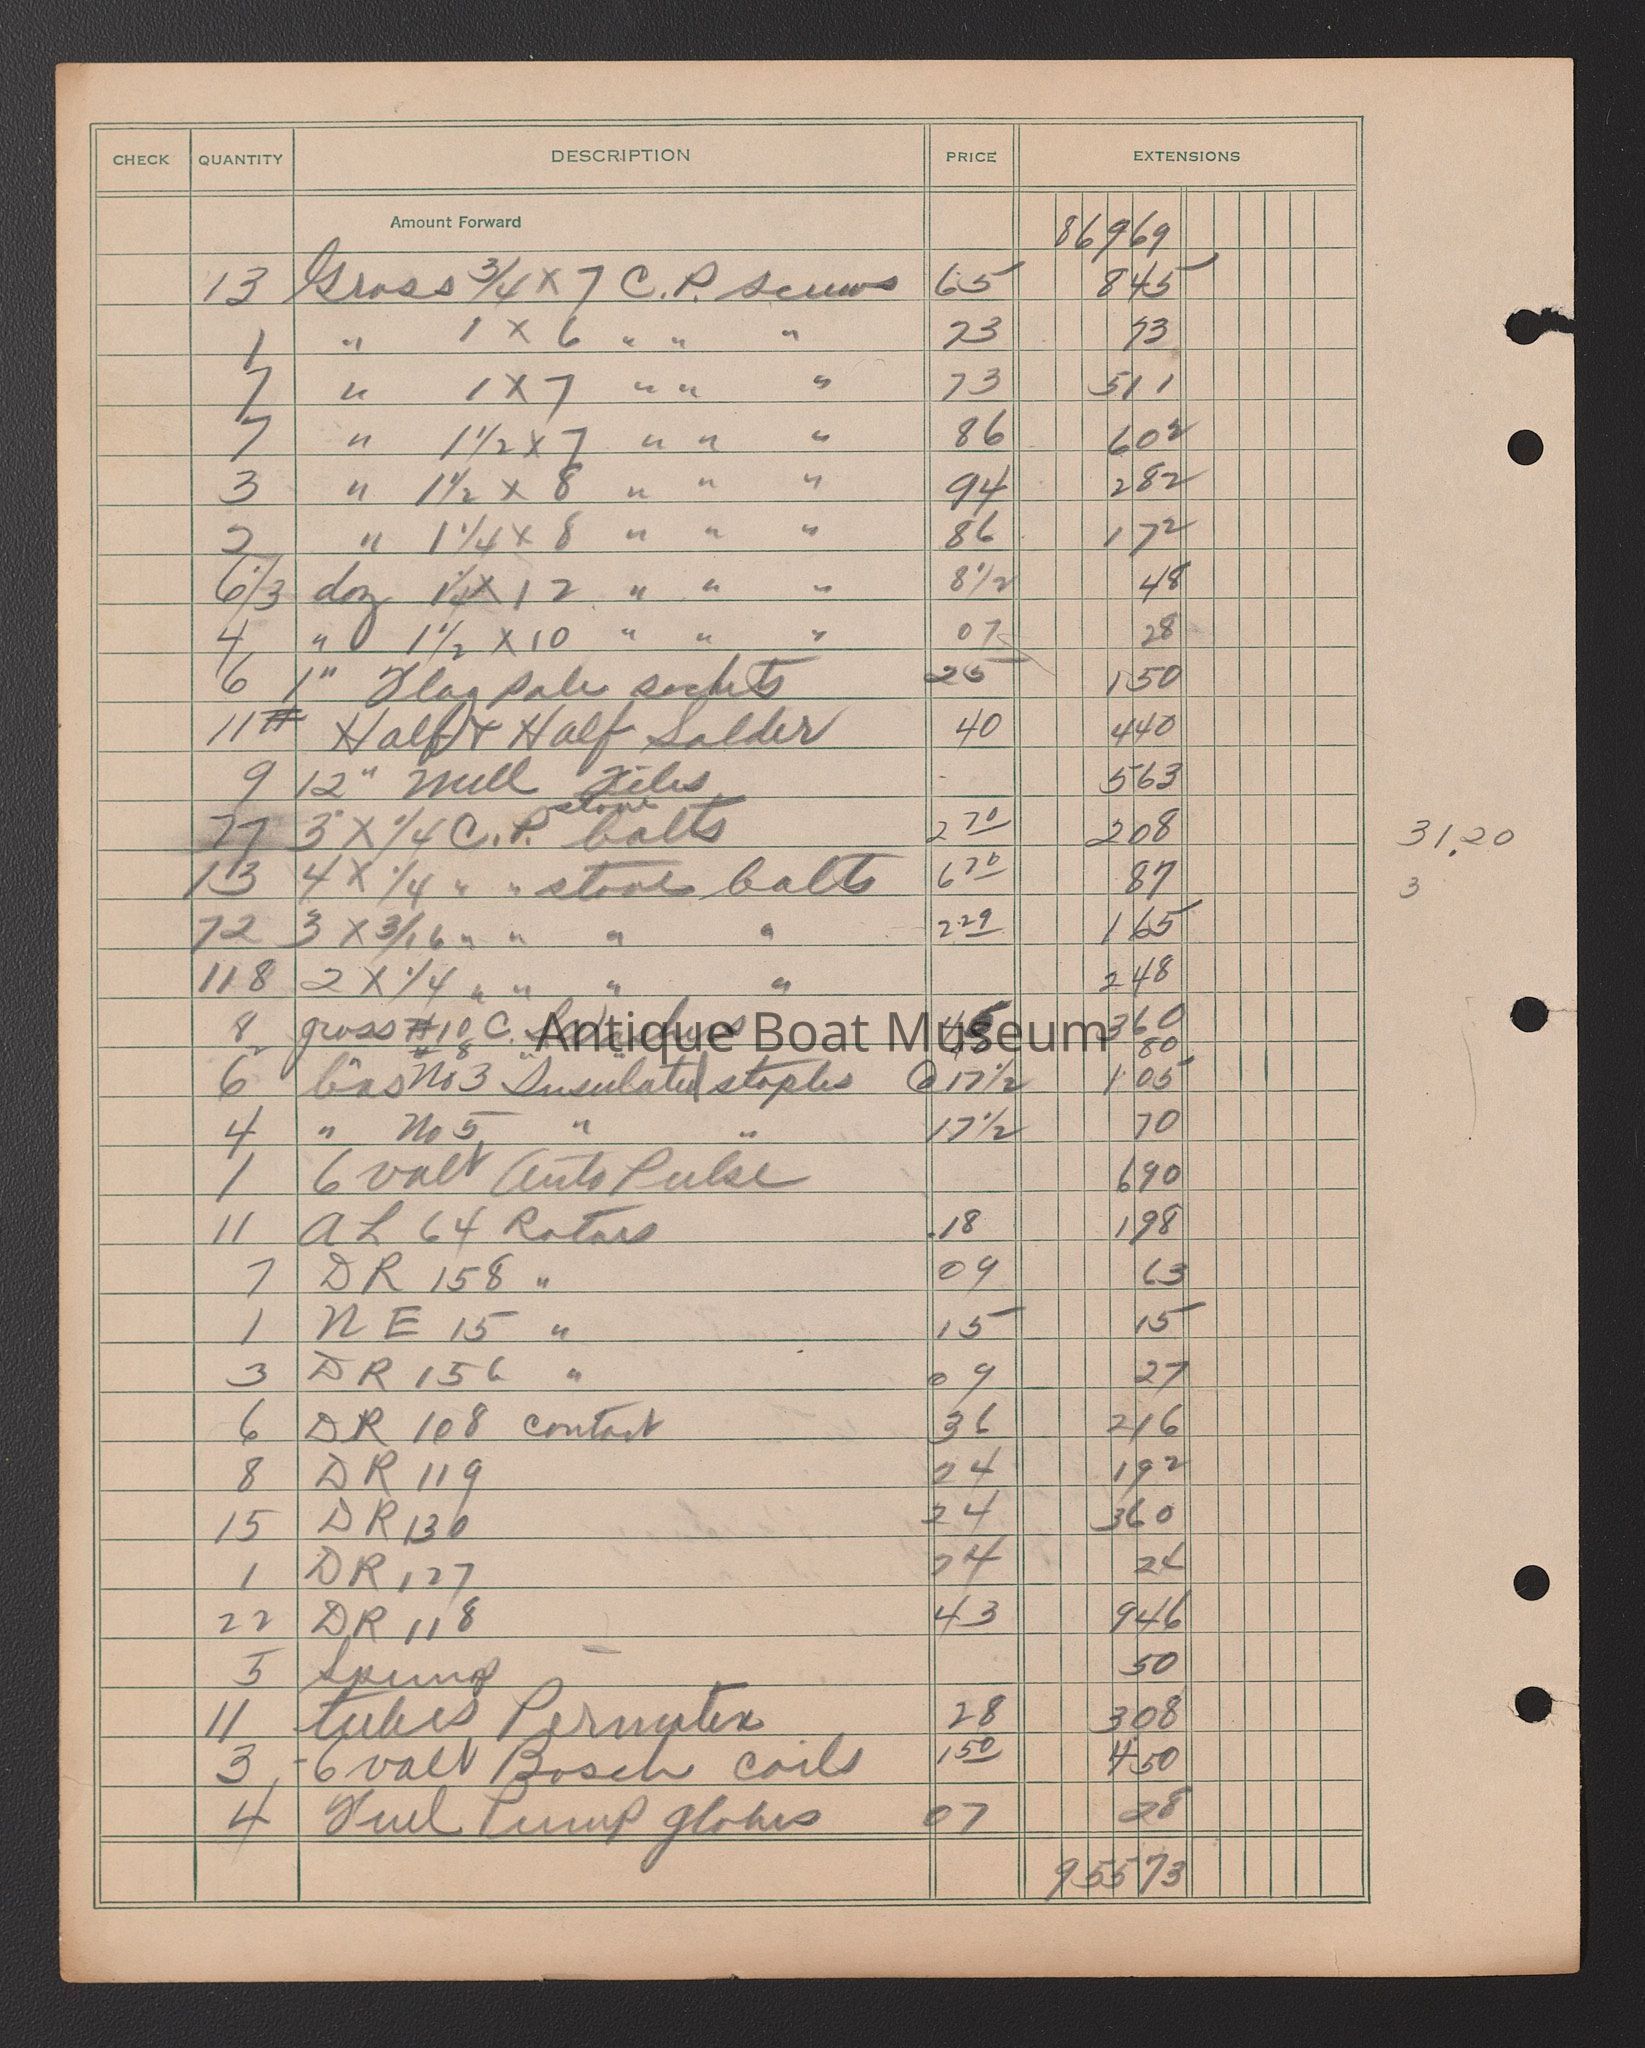 CHECK QUANTITY DESCRIPTION PRICE EXTENSIONS
Amount Forward 86969
13 Gross 3/4 X 7 C.P. screws 65 845
1 " 1 X 6 " " " 73 73
7 " 1 X 7 " " " 73 511
7 " 1 1/2 X 7 " " " 86 602
3 " 1 1/2 X 8 " " " 94 282
2 " 1 1/4 X 8 " " " 86 172
6 1/3 doz 1 1/4 X 12 " " " 8 1/2 48
4 " 1 1/2 X 10 " " " 07 28
6 1" Flag pole sockets 25 150
11# Half & Half Solder 40 440
9 12" Mill Files 563
77 3 X 1/4 C.P. stove bolts 2 70 208 31.20
13 4 X 1/4 " " stove bolts 6 70 87 3
72 3 X 3/16 " " " " 2.29 165
118 2 X 1/4 " " " " 248
8 gross #10 C. 45 360
2 #8 80
6 No 3 Insulated staples @ 17 1/2 105
4 " No 5 " " 17 1/2 70
1 6 volt Auto Pulse 690
11 AL 64 Rotors .18 198
7 DR 158 " 09 63
1 NE 15 " 15 15
3 DR 156 " 09 27
6 DR 108 contact 36 216
8 DR 119 24 192
15 DR 130 24 360
1 DR 127 24 24
22 DR 118 43 946
5 50
11 tubes Permatex 28 308
3 6 volt Bosch coils 1 50 450
4 Fuel Pump globes 07 28
95573
Antique Boat Museum